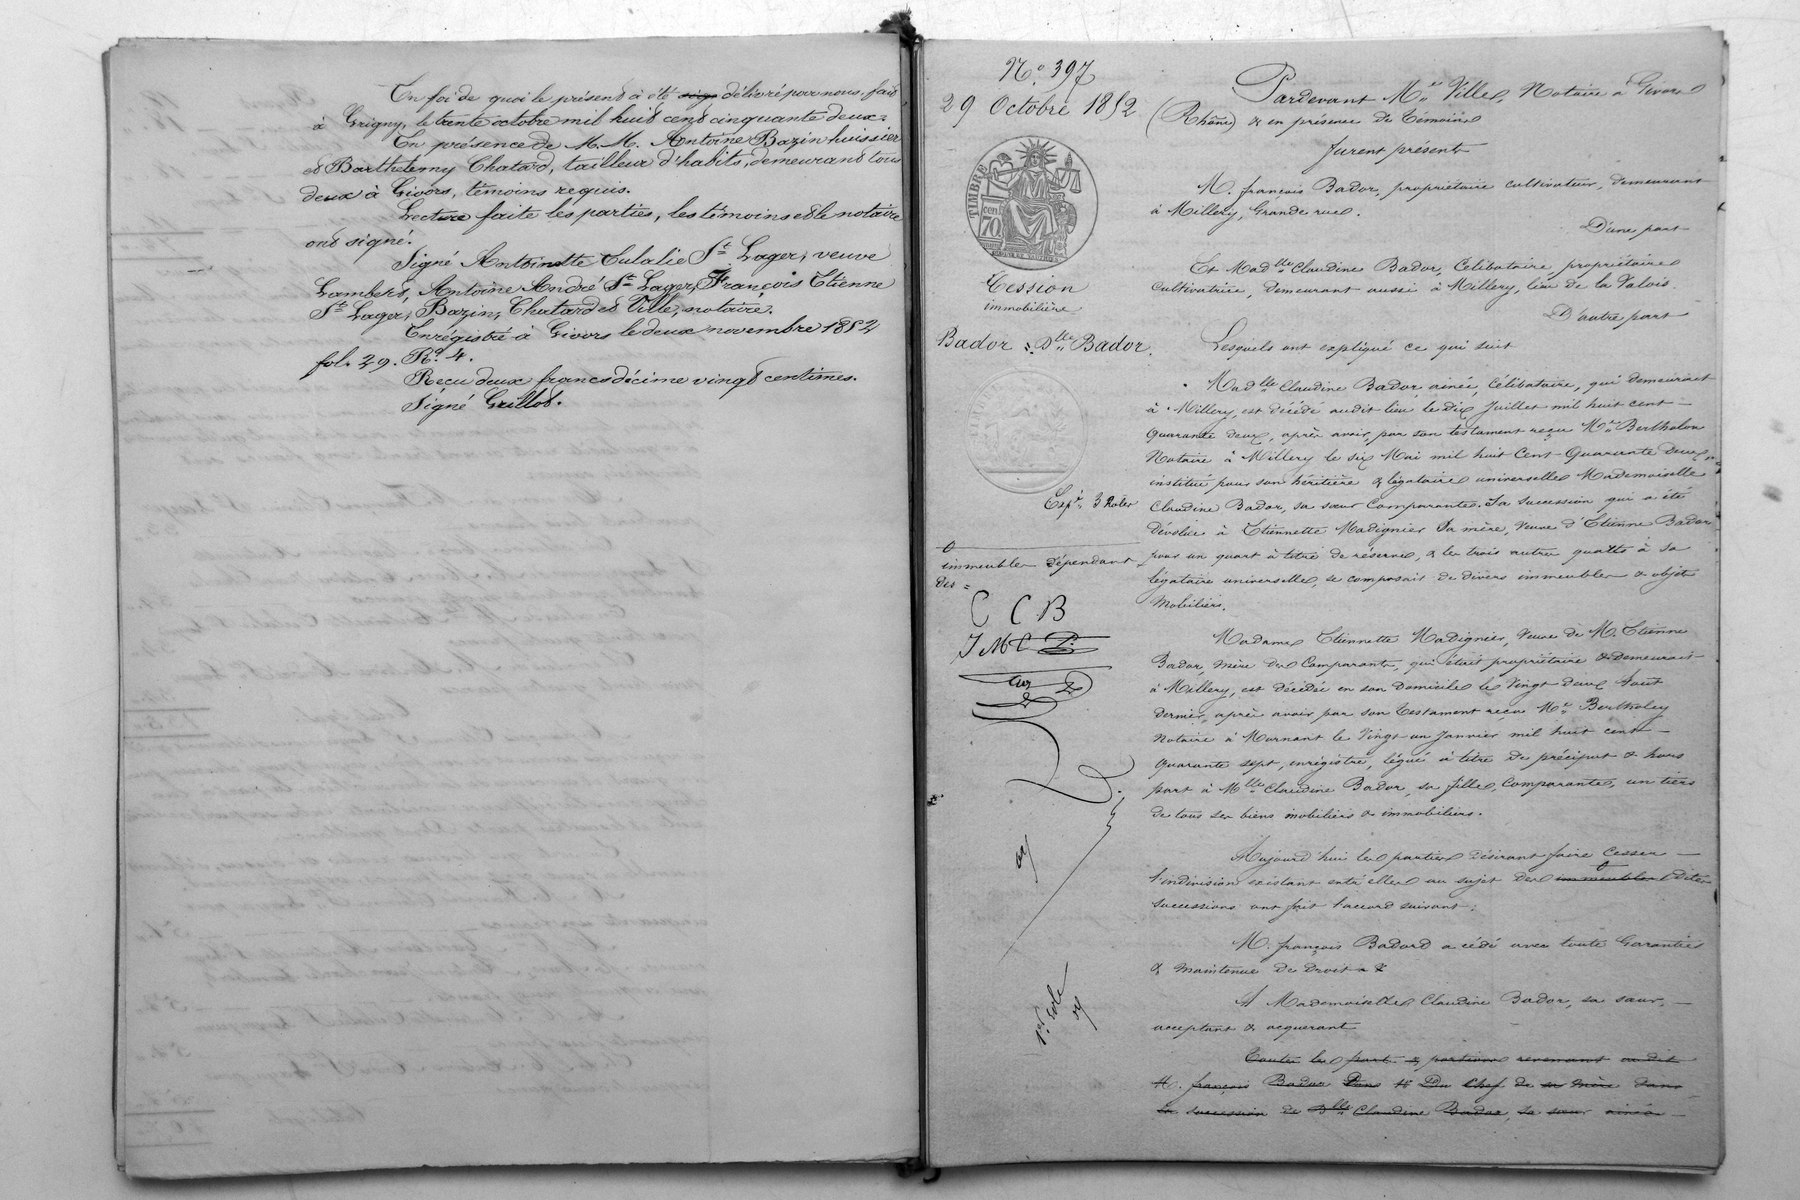 En foi de quoi le présent a été délivré par nous, fait
à Grigny, le trente octobre mil huit cent cinquante deux.
En présence de M.M. Antoine Bazin huissier
et Barthelemy Chatard, tailleur d'habits, demeurant tous
deux à Givors, témoins requis.
Lecture faite les parties, les témoins et le notaire
ont signé.
Signé Antoinette Eulalie St Lager, veuve
Lambert, Antoine André St Lager, François Etienne
St Lager, Bazin, Chatard et Ville, notaire.
Enrégistré à Givors le deux novembre 1852
fol. 29. Ro. 4.
Reçu deux francs décime vingt centimes.
Signé Guillot.
No 397
29 Octobre 1852
TIMBRE
70
Cession
immobilière
Bador : Dlle Bador.
Expé 3 Roles
immeubles dépendant
des =
C C B
1er role
Pardevant Me Ville, Notaire à Givors
(Rhône) & en présence de témoins
furent présents
M. françois Bador, propriétaire cultivateur, demeurant
à Millery, Grande rue.
D'une part
Et Madlle Claudine Bador, Célibataire propriétaire
cultivatrice, demeurant aussi à Millery, lieu de la Valois.
D'autre part
Lesquels ont expliqué ce qui suit
Madlle Claudine Bador, ainée, Célibataire, qui demeurait
à Millery, est décédé audit lieu le dix Juillet mil huit cent
quarante deux, après avoir, par son testament reçu Me Bertholon
Notaire à Millery le six Mai mil huit Cent Quarante deux
institué pour son héritière & légataire universelle Mademoiselle
Claudine Bador, sa sœur Comparante. Sa succession qui a été
dévolue à Etiennette Madignier sa mère, Veuve d'Etienne Bador
pour un quart à titre de réserve, & les trois autres quarts à sa
légataire universelle, se composait de divers immeubles & objets
Mobiliers.
Madame Etiennette Madignier, Veuve de M. Etienne
Bador, mère des Comparants, qui était propriétaire & demeurait
à Millery, est décédée en son domicile le Vingt deux Aout
dernier, après avoir par son testament reçu Me Bertholey
Notaire à Mornant le Vingt un Janvier mil huit cent
quarante sept, enrégistré, légué à titre de préciput & hors
part à Mlle Claudine Bador, sa fille, Comparante, un tiers
de tous ses biens mobiliers & immobiliers.
Aujourd'hui les parties désirant faire cesser
l'indivision existant entr'elles au sujet des immeubles dites
successions ont fait l'accord suivant:
M. françois Badord a cédé avec toute Garantie
& maintenue de Droit
A Mademoiselle Claudine Bador, sa sœur,
acceptant & acquerant
Toutes les parts & portions revenant audit
M. françois Bador Dans Du Chef de sa mère dans
la succession de Dlle Claudine Bador, sa sœur ainée